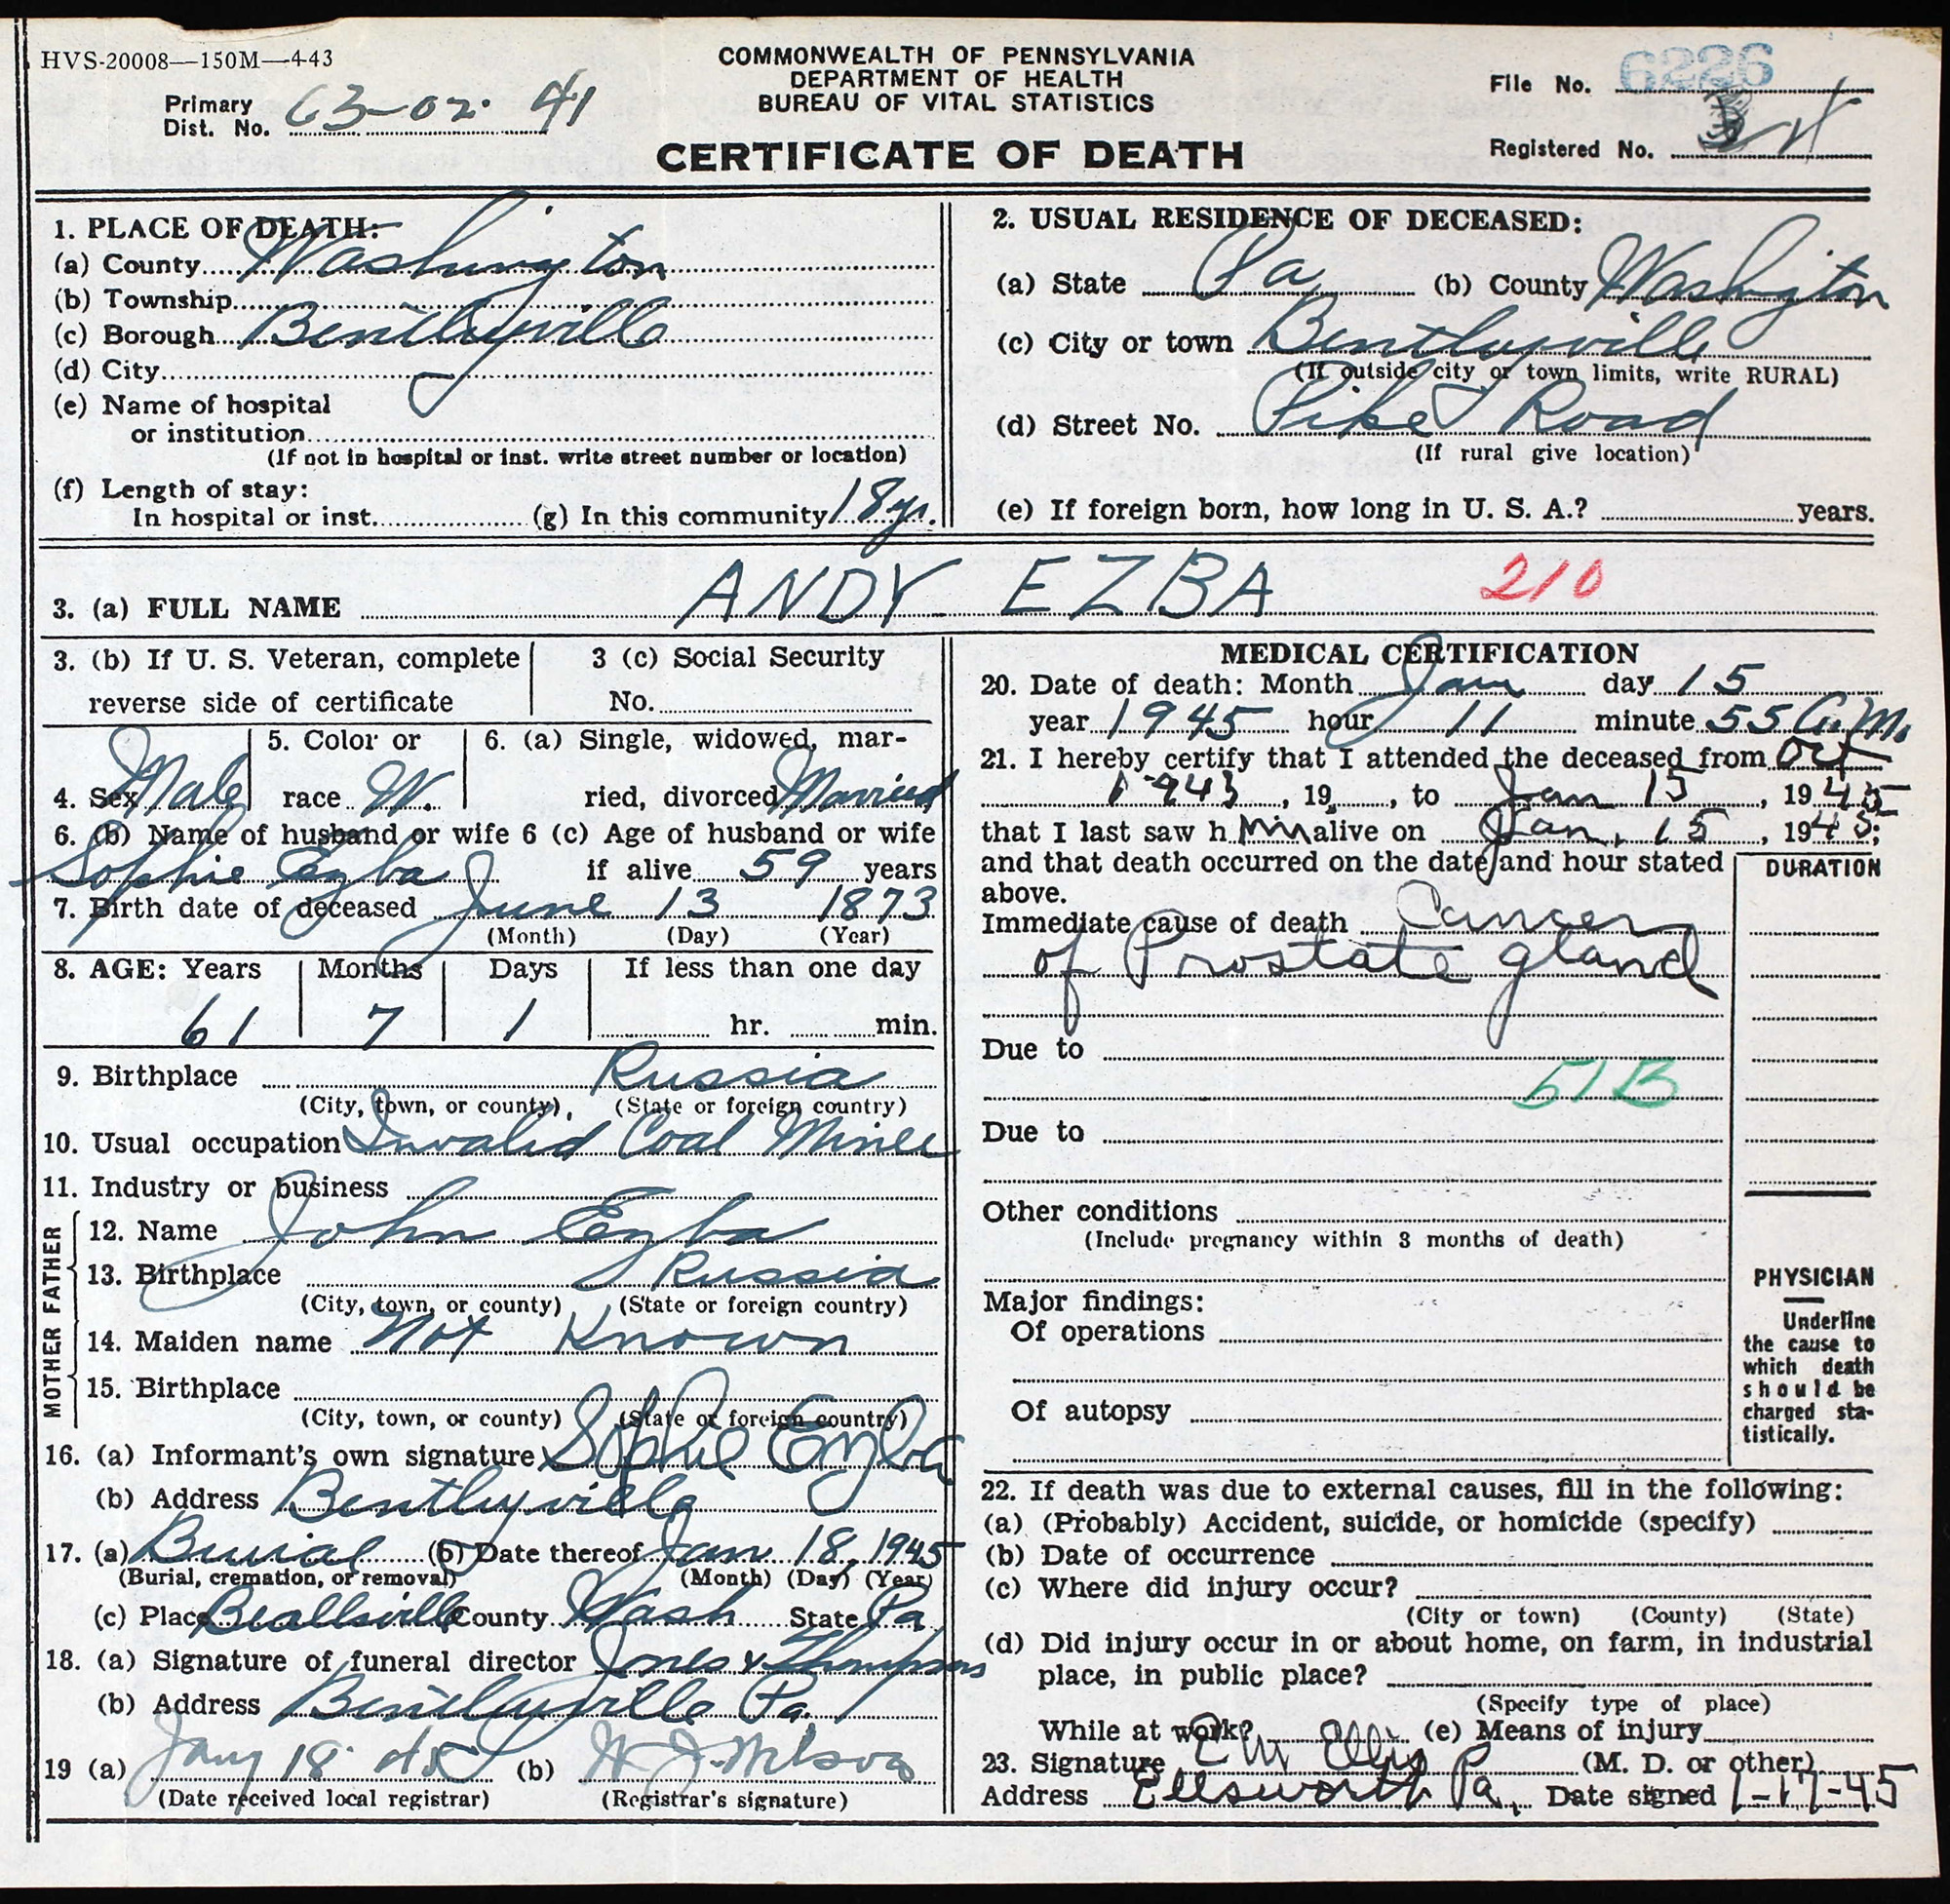 HVS-20008—150M—4-43
COMMONWEALTH OF PENNSYLVANIA
DEPARTMENT OF HEALTH
BUREAU OF VITAL STATISTICS
CERTIFICATE OF DEATH
Primary Dist. No. 63-02-41
File No. 6226
Registered No.
1. PLACE OF DEATH:
(a) County Washington
(b) Township
(c) Borough Bentleyville
(d) City
(e) Name of hospital
or institution
(If not in hospital or inst. write street number or location)
(f) Length of stay:
In hospital or inst. (g) In this community 18 yr.
2. USUAL RESIDENCE OF DECEASED:
(a) State Pa (b) County Washington
(c) City or town Bentleyville
(If outside city or town limits, write RURAL)
(d) Street No. Pike Road
(If rural give location)
(e) If foreign born, how long in U. S. A.? years.
3. (a) FULL NAME ANDY EZBA 210
3. (b) If U. S. Veteran, complete
reverse side of certificate
3 (c) Social Security
No.
4. Sex Male
5. Color or
race W.
6. (a) Single, widowed, mar-
ried, divorced Married
6. (b) Name of husband or wife 6 (c) Age of husband or wife
Sophie Ezba if alive 59 years
7. Birth date of deceased June 13 1873
(Month) (Day) (Year)
8. AGE: Years Months Days If less than one day
61 7 1 hr. min.
9. Birthplace Russia
(City, town, or county), (State or foreign country)
10. Usual occupation Invalid Coal Miner
11. Industry or business
FATHER
12. Name John Ezba
13. Birthplace Russia
(City, town, or county) (State or foreign country)
MOTHER
14. Maiden name Not Known
15. Birthplace
(City, town, or county) (State or foreign country)
16. (a) Informant's own signature Sophie Ezba
(b) Address Bentleyville
17. (a) Burial (b) Date thereof Jan 18, 1945
(Burial, cremation, or removal) (Month) (Day) (Year)
(c) Place Beallsville County Wash State Pa
18. (a) Signature of funeral director Jones & Thompson
(b) Address Bentleyville Pa.
19 (a) Jany 18 45 (b)
(Date received local registrar) (Registrar's signature)
MEDICAL CERTIFICATION
20. Date of death: Month Jan day 15
year 1945 hour 11 minute 55 A.M.
21. I hereby certify that I attended the deceased from Oct
1943, 19 , to Jan 15, 1945
that I last saw him alive on Jan. 15, 1945;
and that death occurred on the date and hour stated
above.
DURATION
Immediate cause of death Cancer
of Prostate gland
Due to
51B
Due to
Other conditions
(Include pregnancy within 3 months of death)
Major findings:
Of operations
Of autopsy
PHYSICIAN
Underline
the cause to
which death
should be
charged sta-
tistically.
22. If death was due to external causes, fill in the following:
(a) (Probably) Accident, suicide, or homicide (specify)
(b) Date of occurrence
(c) Where did injury occur?
(City or town) (County) (State)
(d) Did injury occur in or about home, on farm, in industrial
place, in public place?
(Specify type of place)
While at work? (e) Means of injury
23. Signature E M Ellis (M. D. or other)
Address Ellsworth Pa. Date signed 1-17-45